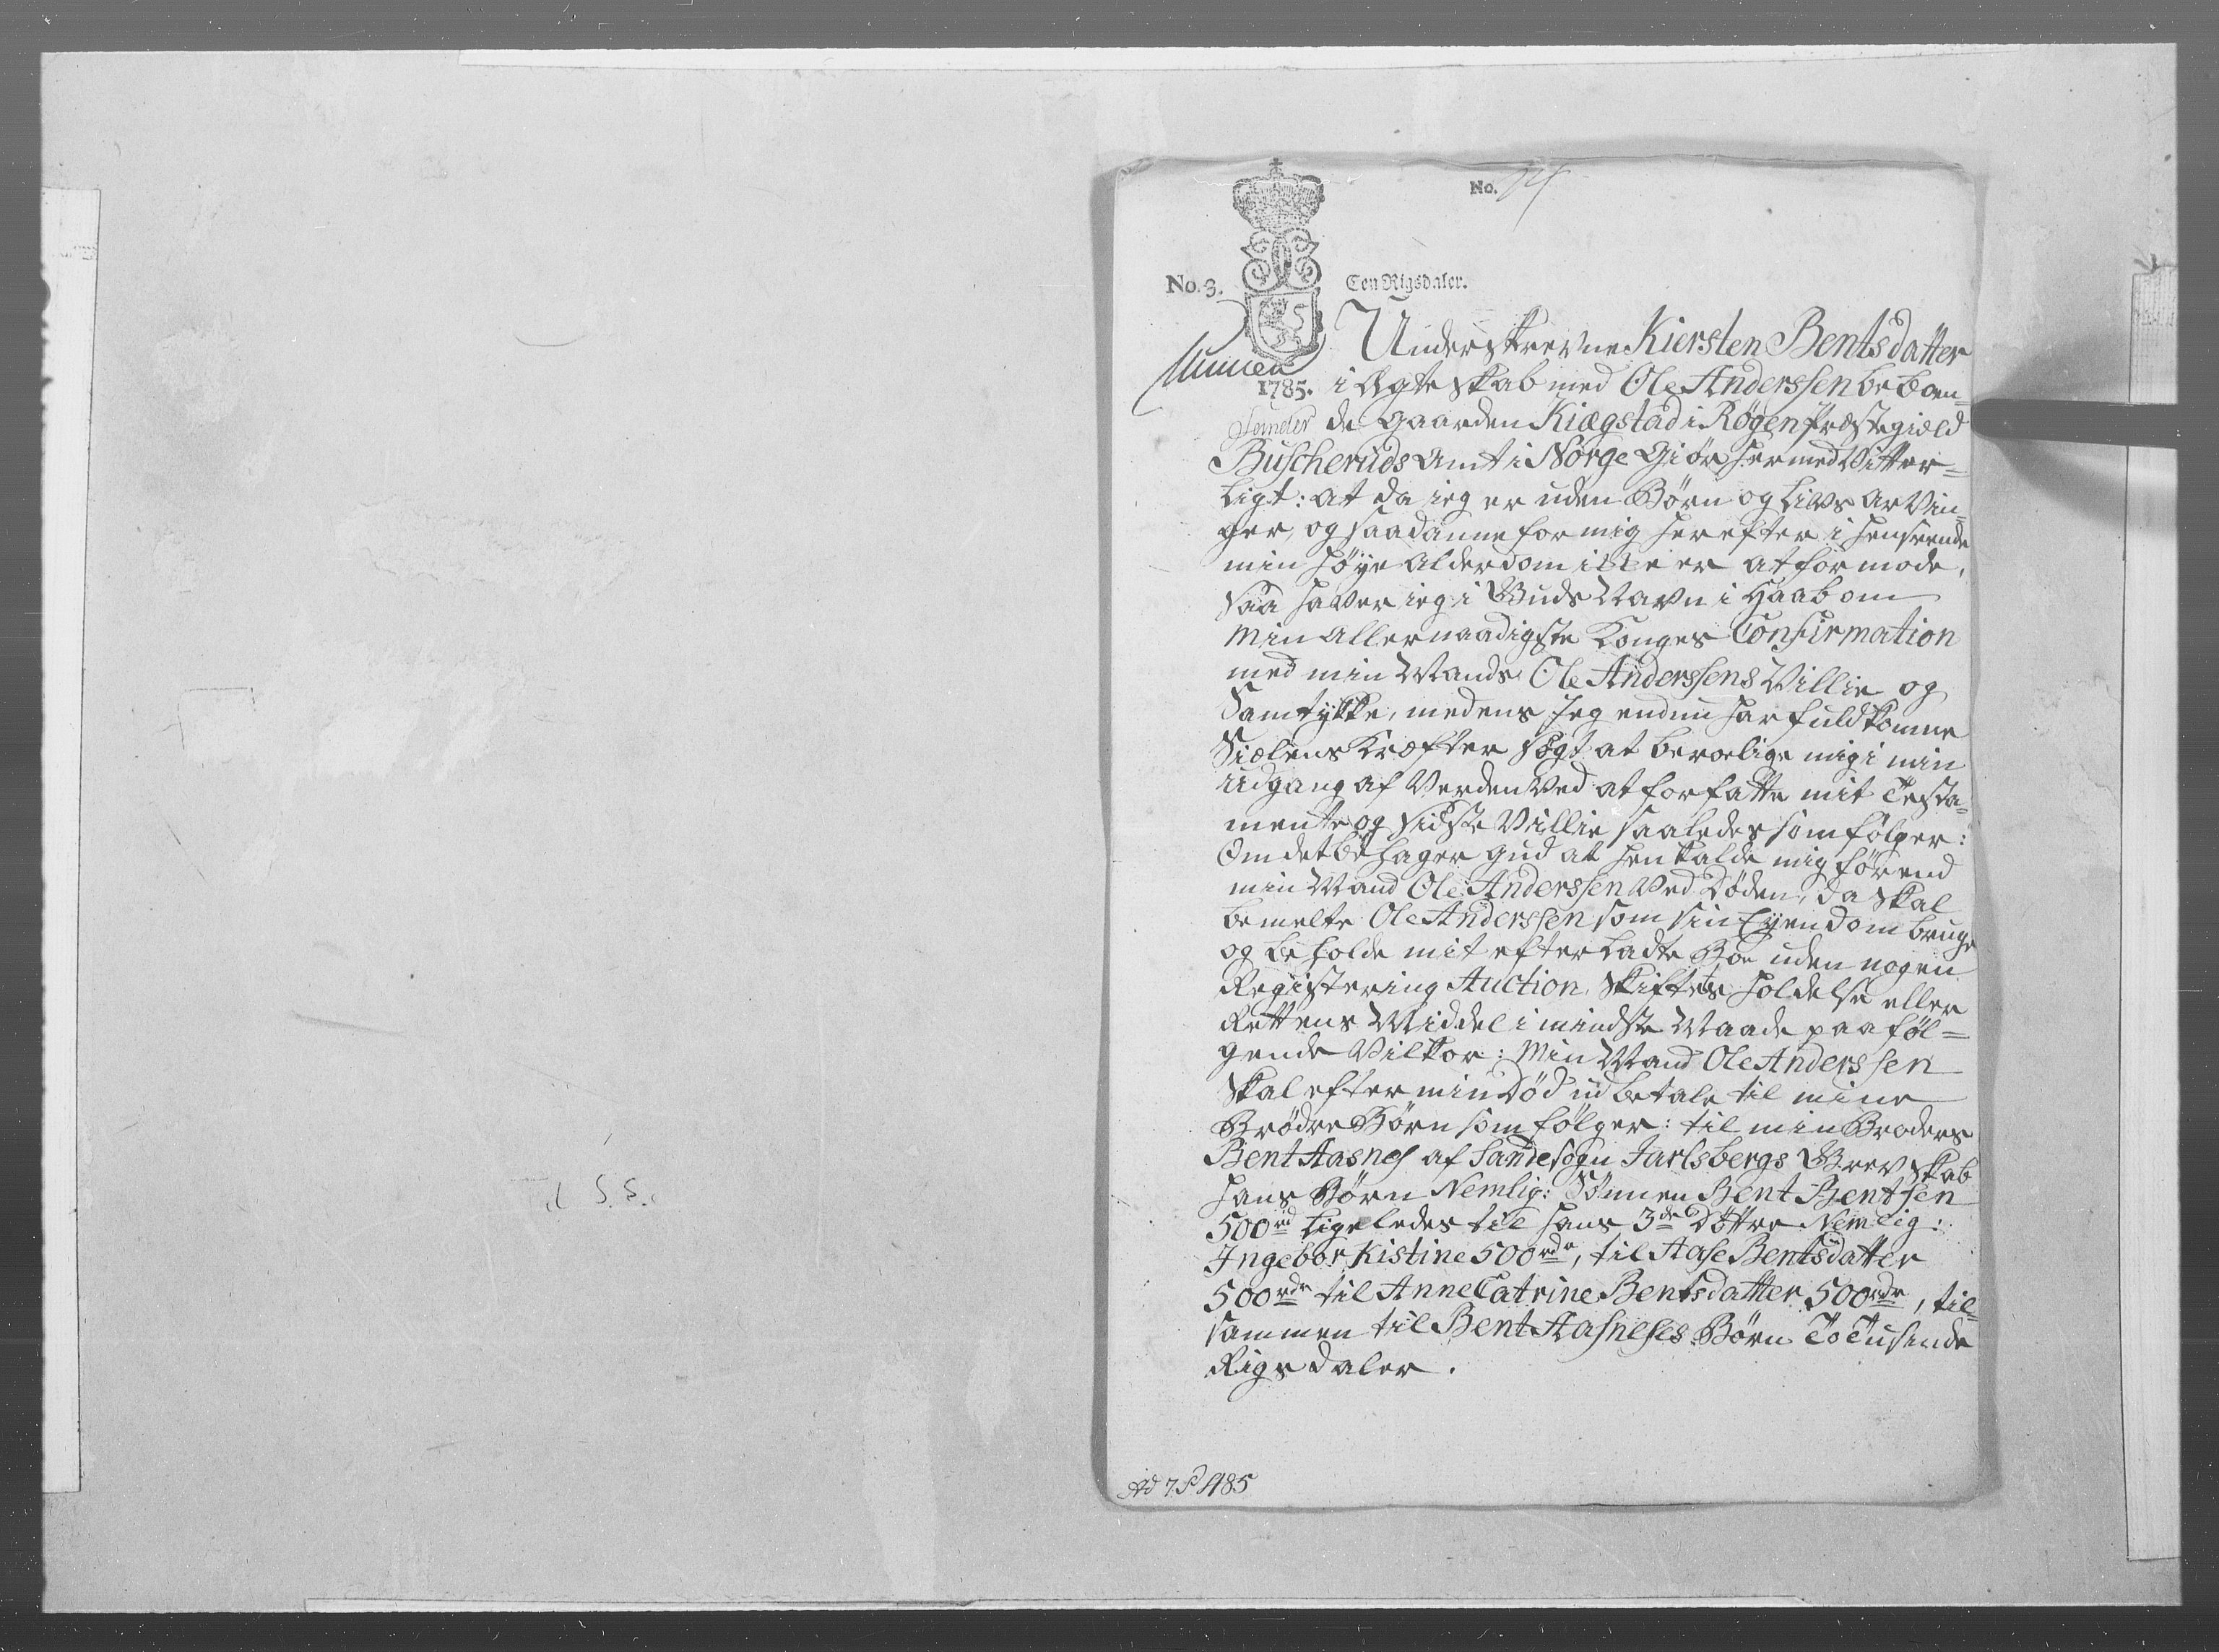 No.
No. 3.
Een Rigsdaler.
1785.
Underskrevne Kiersten Bentsdatter
i Ægteskab med Ole Anderssen beboen-
de Gaarden Kiægstad i Røgen Præstegield
Buscheruds Amt i Norge Giør hermed Vitter=
ligt: at da ieg er uden Børn og Livs Arvin-
ger, og saadanne for mig herefter i henseende
min høye Alderdom ikke er at formode,
saa haver ieg i Guds Navn i Haab om
Min Allernaadigste Konges Confirmation
med min Mands Ole Anderssens Villie og
Samtykke, medens Jeg endnu har fuldkomne
Siælens Kræfter søgt at beroelige mig i min
Udgang af Verden ved at forfatte mit Testa-
mente og sidste Villie saaledes som følger:
Om det behager Gud at henkalde mig førend
min Mand Ole Anderssen ved Døden, da skal
bemelte Ole Anderssen som sin Eyendom bruge
og beholde mit efterladte Boe uden nogen
Registering Auction, Skiftes holdelse eller
Rettens Middel i mindste Maade paa føl=
gende Vilkor: Min Mand Ole Anderssen
skal efter min Død udbetale til mine
Brødre Børn som følger: til min Broders
Bent Aasnes af Sande sogn Jarlsbergs Grevskab
hans Børn Nemlig: Sønnen Bent Bentsen
500 rd ligeledes til hans 3de Døttre Nemlig:
Ingebor Kistine 500 rdr, til Aase Bentsdatter
500 rdr til Anne Catrine Bentsdatter 500 rdr, til-
sammen til Bent Aasneses Børn To Tusinde
Rigsdaler.